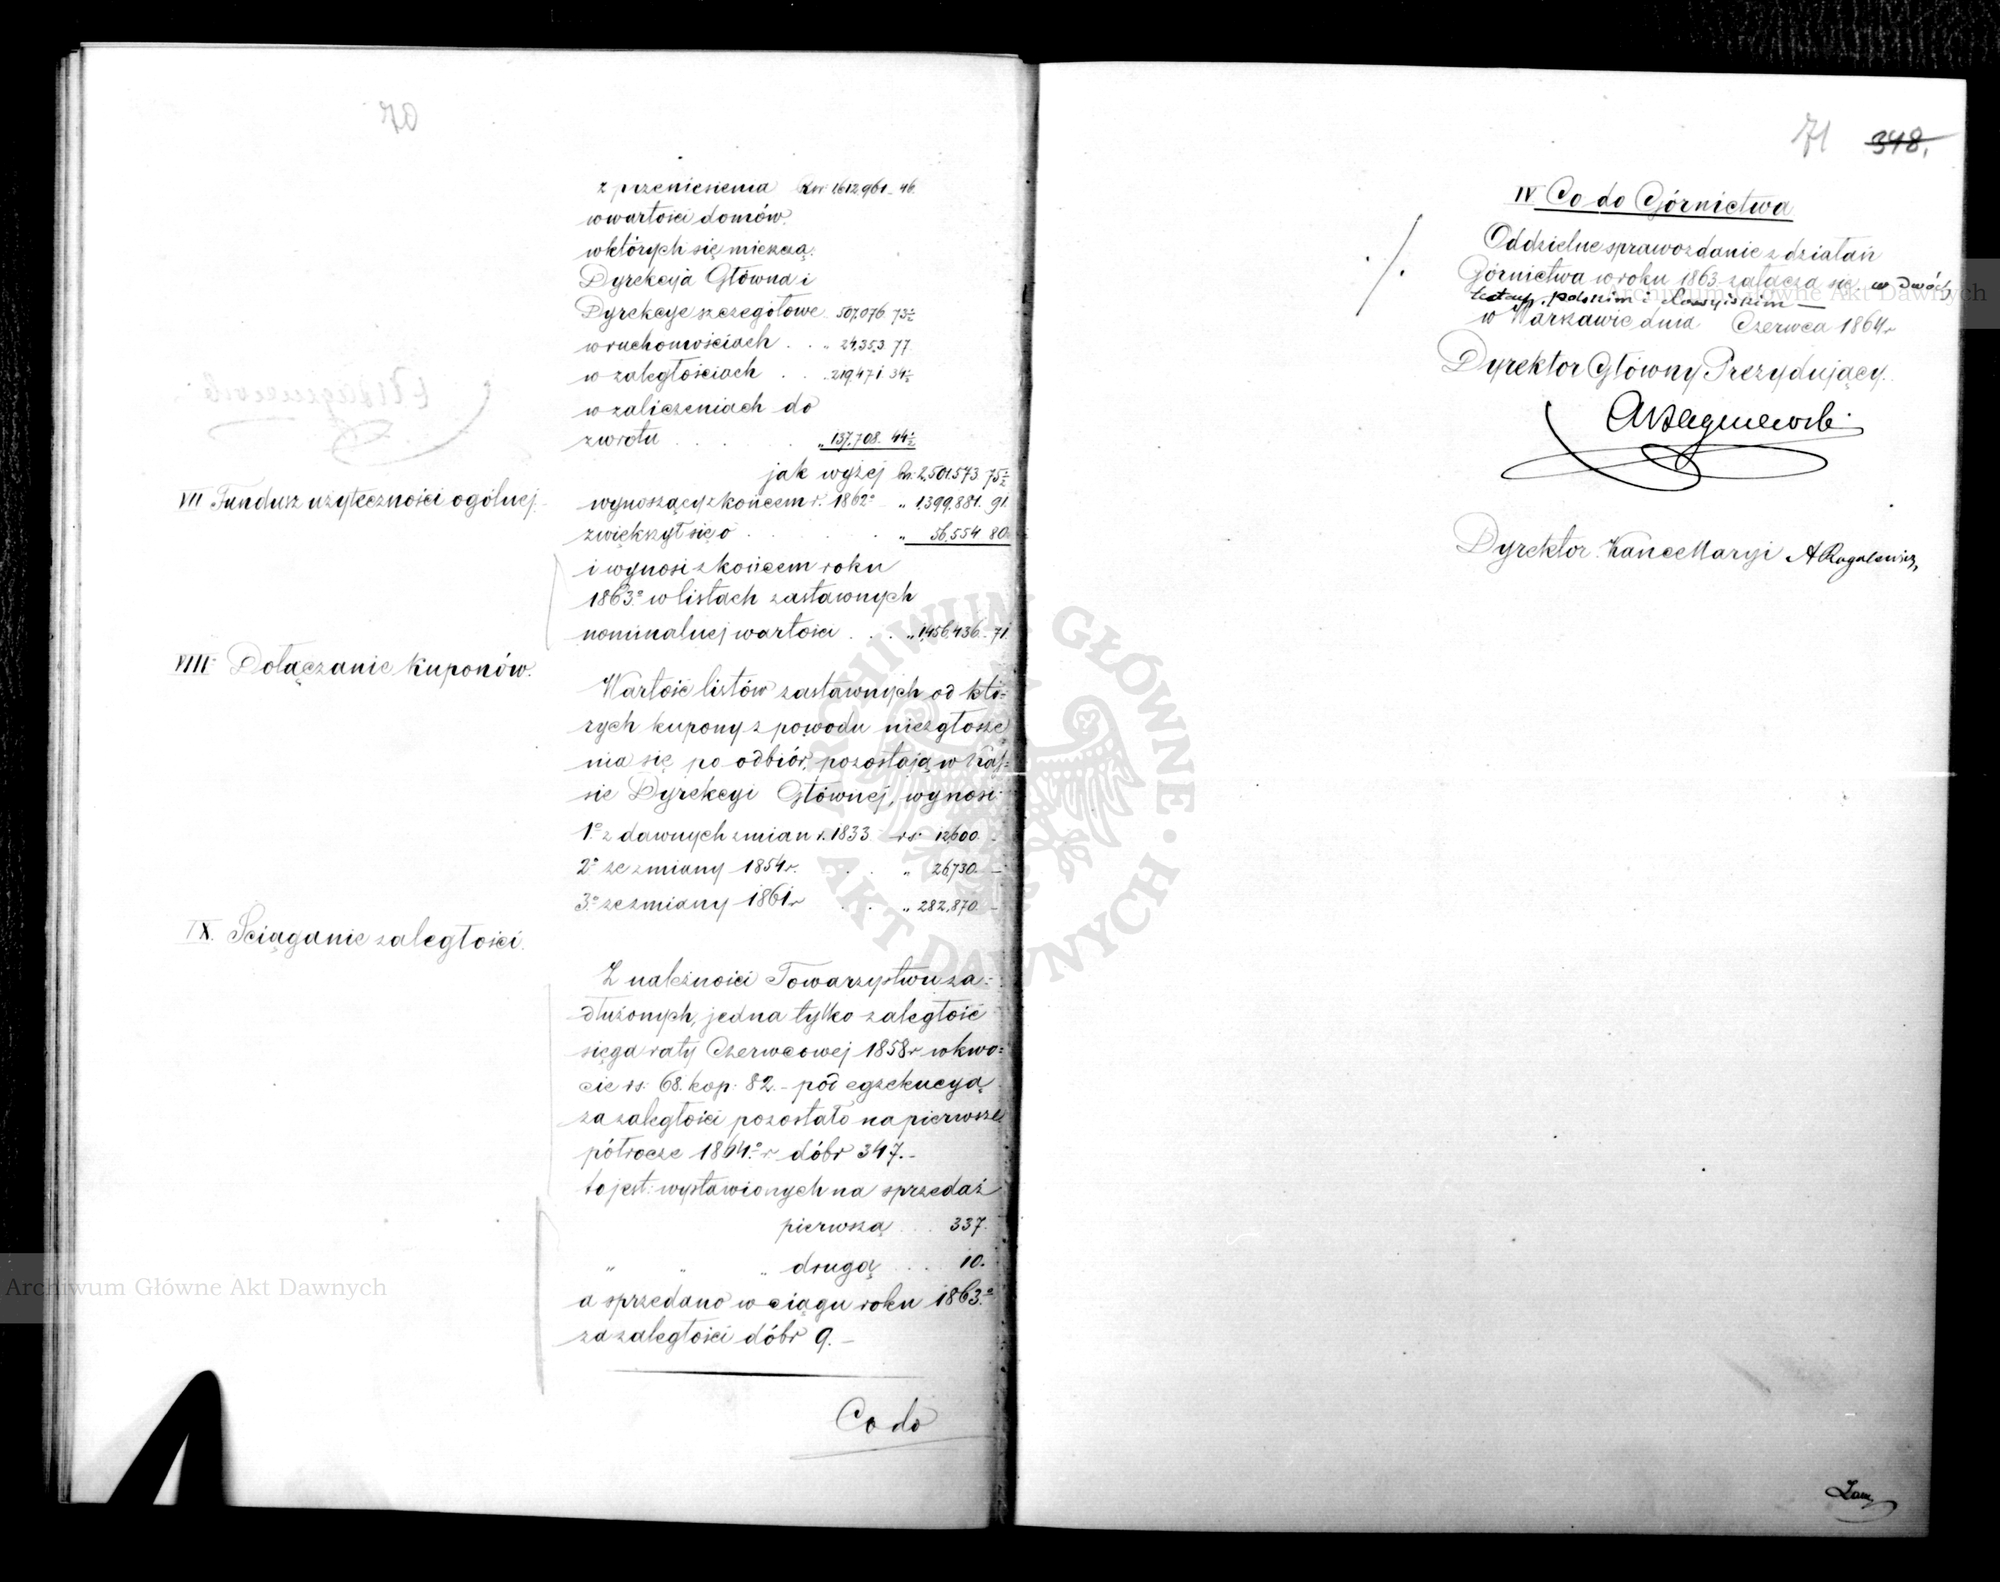 70
z przeniesienia Rsr. 1612,961 46.
w wartości domów.
w których się mieszczą:
Dyrekcyja Główna i
Dyrekcye szczegółowe 507,076 73½
w ruchomościach . . „ 24,353 77.
w zaległościach . . „ 219,471 34½
w zaliczeniach do
zwrotu . . . . „ 137,708. 44½
jak wyżej Rsr. 2,501,573 75½
VII Fundusz użyteczności ogólnej.
wynoszący z końcem r. 1862º „ 1,399,881. 91.
zwiększył się o . . . . . „ 56,554 80.
i wynosi z końcem roku
1863º w listach zastawnych
nominalnej wartości . . . „ 1,456,436. 71.
VIII Dołączanie kuponów.
Wartość listów zastawnych od któ=
rych kupony z powodu niezgłosze
nia się po odbiór, pozostają w Kas=
sie Dyrekcyi Głównej, wynosi
1º z dawnych zmian r. 1833 rs: 12,600. –
2º ze zmiany 1854 r. . . „ 26,730. –
3º ze zmiany 1861 r . . „ 282,870. –
IX. Ściąganie zaległości.
Z należności Towarzystwu za=
dłużonych, jedna tylko zaległość
sięga raty Czerwcowej 1858 r w kwo=
cie rs: 68. kop: 82. – pod egzekucyą
za zaległości pozostało na pierwsze
półrocze 1864º r dóbr 347. –
to jest: wystawionych na sprzedaż
pierwszą . . . 337.
„ „ „ drugą . . . 10.
a sprzedano w ciągu roku 1863º
za zaległości dóbr 9. –
Co do
71 348.
IV Co do Górnictwa
Oddzielne sprawozdanie z działań
Górnictwa w roku 1863 załącza się. w dwóch
textach, Polskim i Rossyiskim –
w Warszawie dnia Czerwca 1864 r
Dyrektor Główny Prezydujący.
Dyrektor Kancellaryi A Rogalewicz,
Archiwum Główne Akt Dawnych
Archiwum Główne Akt Dawnych
ARCHIWUM GŁÓWNE AKT DAWNYCH